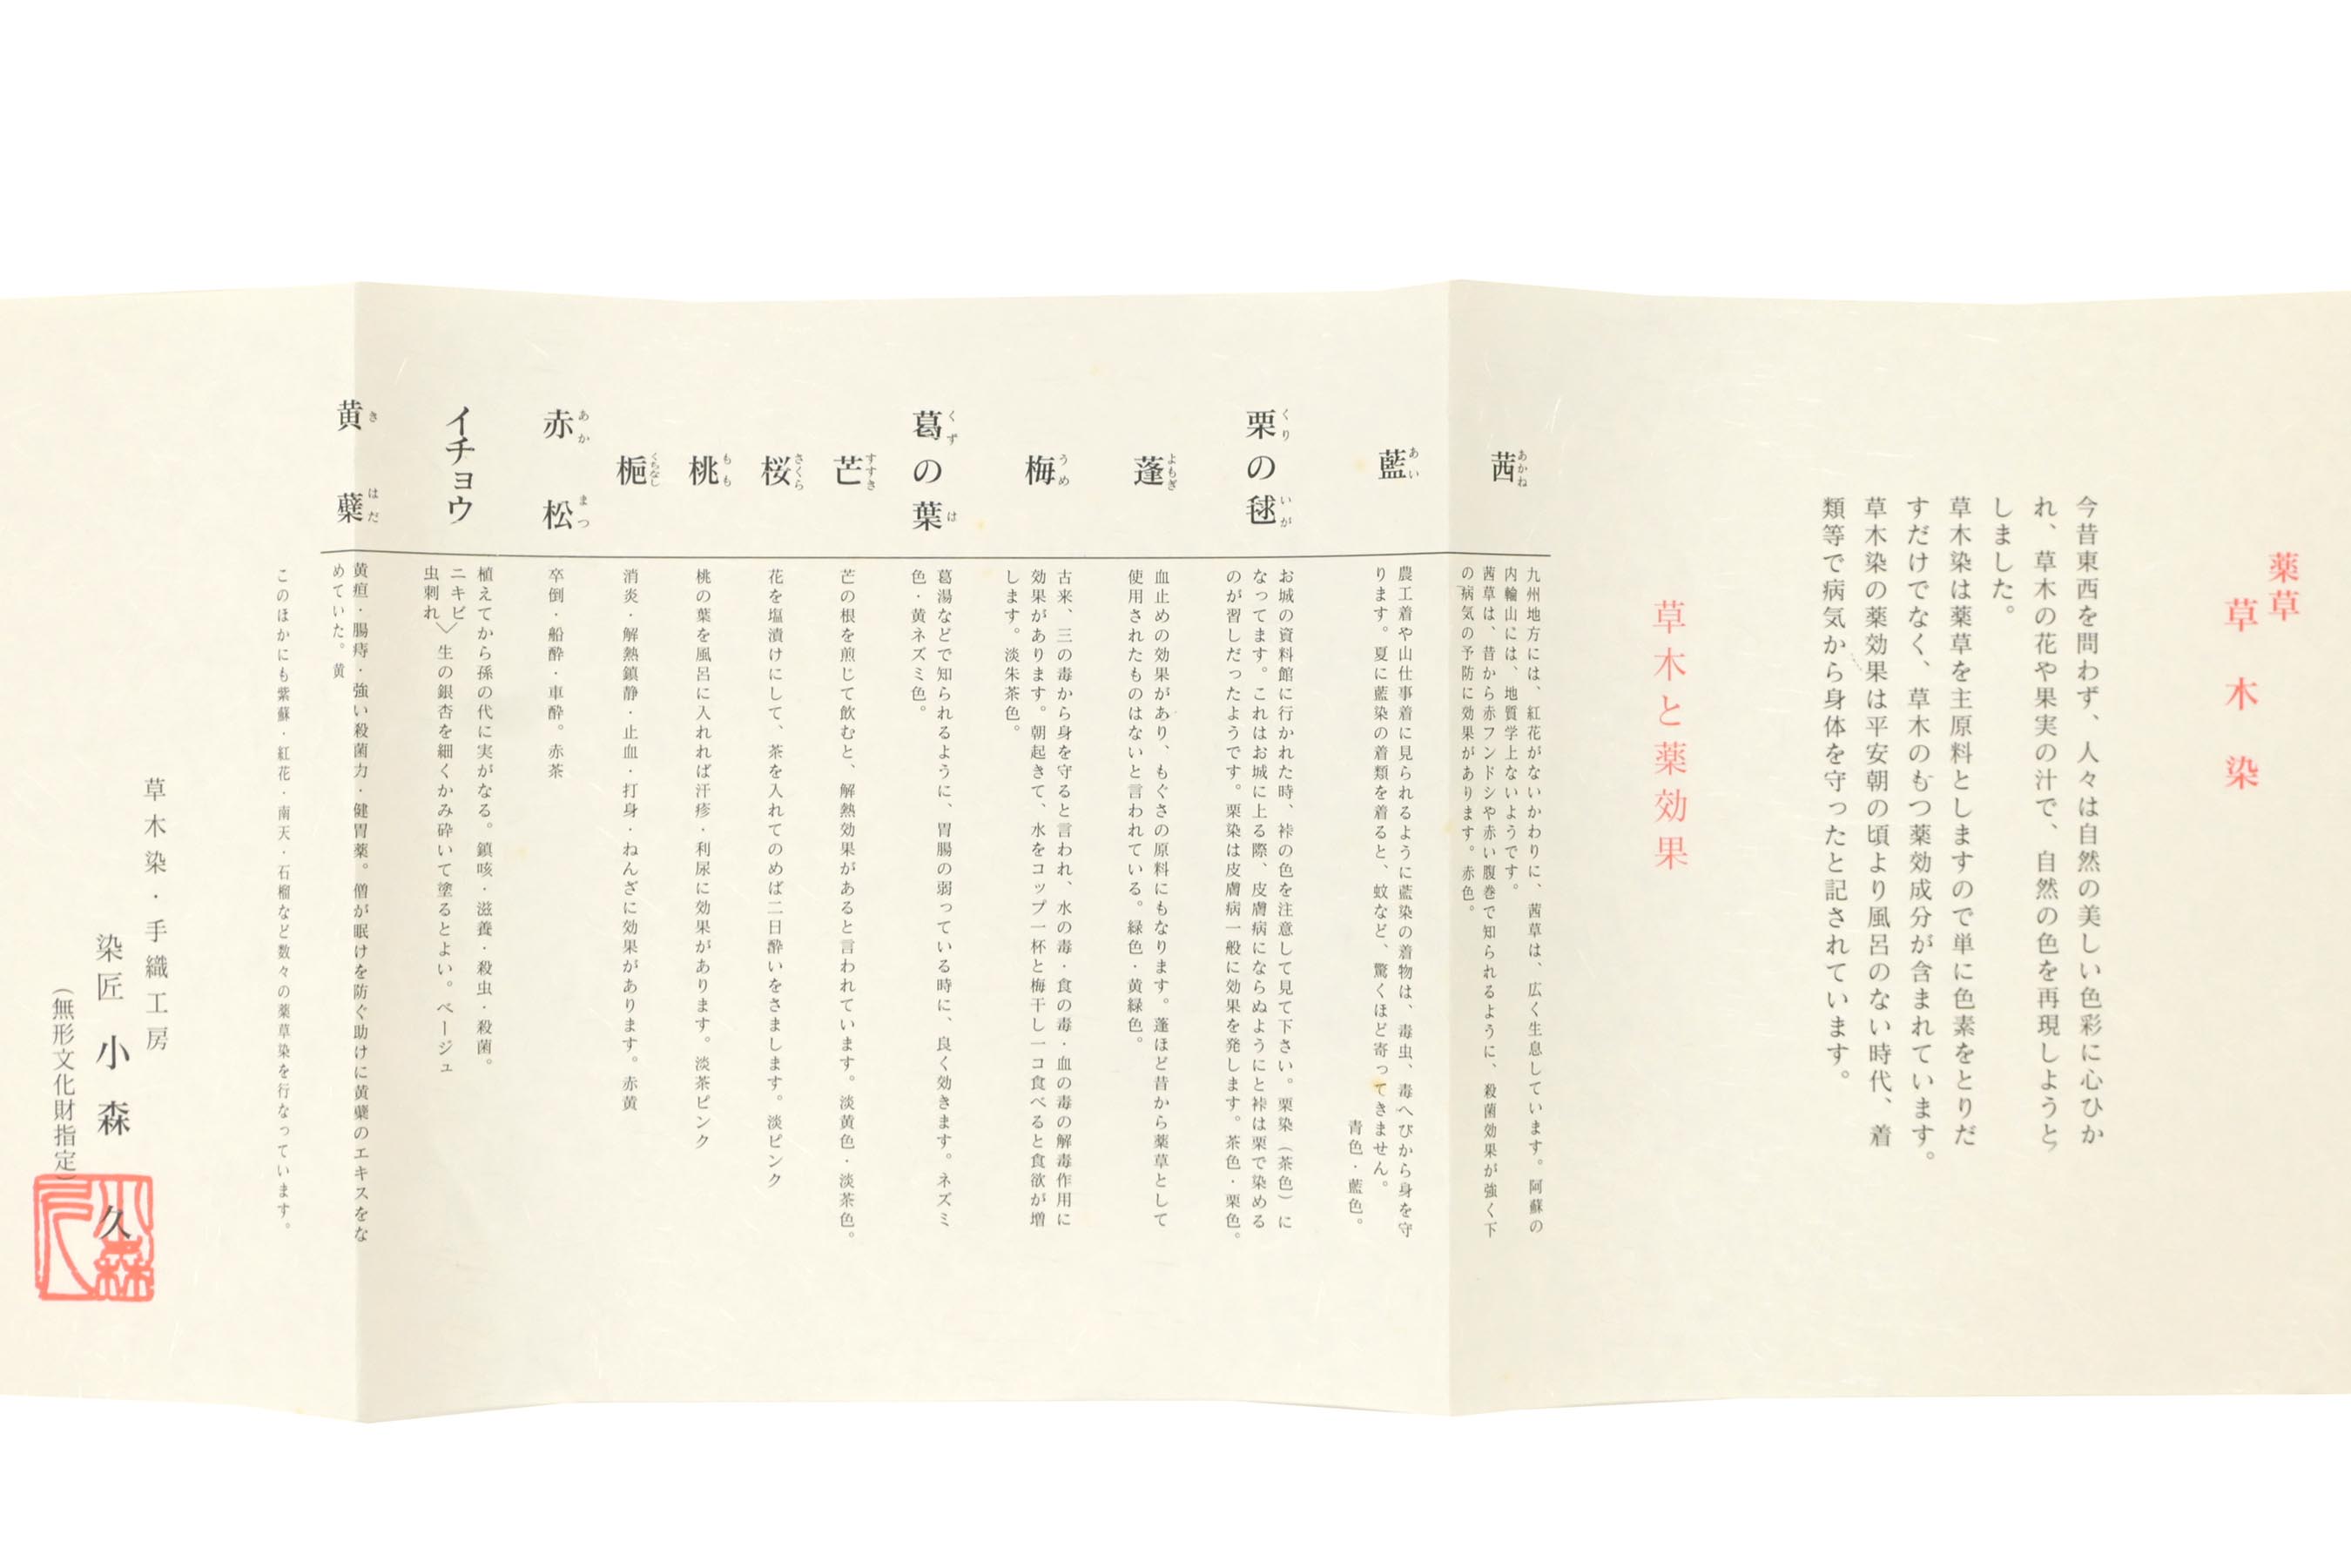 薬草
草木染
今昔東西を問わず、人々は自然の美しい色彩に心ひか
れ、草木の花や果実の汁で、自然の色を再現しようと
しました。
草木染は薬草を主原料としますので単に色素をとりだ
すだけでなく、草木のもつ薬効成分が含まれています。
草木染の薬効果は平安朝の頃より風呂のない時代、着
類等で病気から身体を守ったと記されています。
草木と薬効果
茜
あかね
九州地方には、紅花がないかわりに、茜草は、広く生息しています。阿蘇の
内輪山には、地質学上ないようです。
茜草は、昔から赤フンドシや赤い腹巻で知られるように、殺菌効果が強く下
の病気の予防に効果があります。赤色。
藍
あい
農工着や山仕事着に見られるように藍染の着物は、毒虫、毒へびから身を守
ります。夏に藍染の着類を着ると、蚊など、驚くほど寄ってきません。
青色・藍色。
栗の毬
くり いが
お城の資料館に行かれた時、裃の色を注意して見て下さい。栗染（茶色）に
なってます。これはお城に上る際、皮膚病にならぬようにと裃は栗で染める
のが習しだったようです。栗染は皮膚病一般に効果を発します。茶色・栗色。
蓬
よもぎ
血止めの効果があり、もぐさの原料にもなります。蓬ほど昔から薬草として
使用されたものはないと言われている。緑色・黄緑色。
梅
うめ
古来、三の毒から身を守ると言われ、水の毒・食の毒・血の毒の解毒作用に
効果があります。朝起きて、水をコップ一杯と梅干し一コ食べると食欲が増
します。淡朱茶色。
葛の葉
くず は
葛湯などで知られるように、胃腸の弱っている時に、良く効きます。ネズミ
色・黄ネズミ色。
芒
すすき
芒の根を煎じて飲むと、解熱効果があると言われています。淡黄色・淡茶色。
桜
さくら
花を塩漬けにして、茶を入れてのめば二日酔いをさまします。淡ピンク
桃
もも
桃の葉を風呂に入れれば汗疹・利尿に効果があります。淡茶ピンク
梔
くちなし
消炎・解熱鎮静・止血・打身・ねんざに効果があります。赤黄
赤松
あか まつ
卒倒・船酔・車酔。赤茶
イチョウ
植えてから孫の代に実がなる。鎮咳・滋養・殺虫・殺菌。
ニキビ
虫刺れ〉生の銀杏を細くかみ砕いて塗るとよい。ベージュ
黄蘗
き はだ
黄疸・腸痔・強い殺菌力・健胃薬。僧が眠けを防ぐ助けに黄蘗のエキスをな
めていた。黄
このほかにも紫蘇・紅花・南天・石榴など数々の薬草染を行なっています。
草木染・手織工房
染匠 小森 久
（無形文化財指定）
小森久